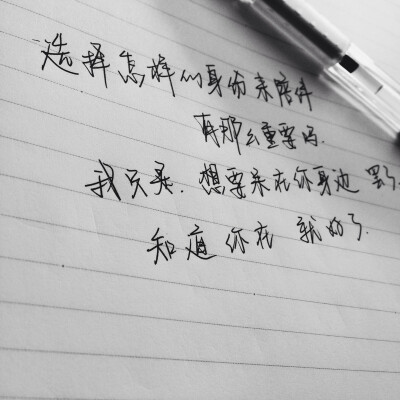 选择怎样的身份来陪伴
有那么重要吗.
我只是.想要亲在你身边 罢了.
知道你在 就好了.